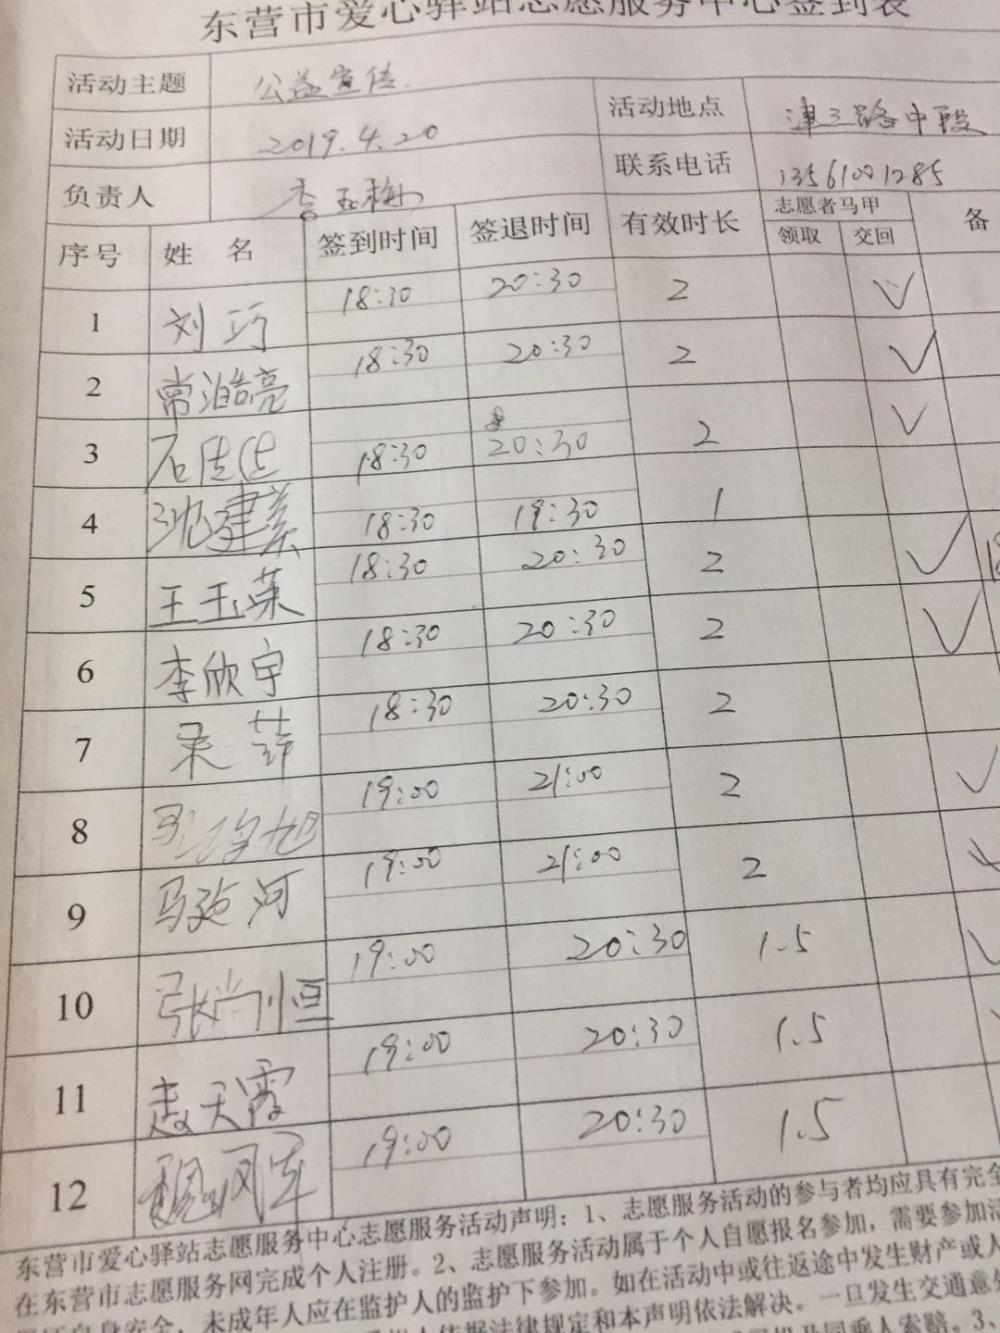 东营市爱心驿站志愿服务中心签到表
活动主题 公益宣传
活动日期 2019.4.20 活动地点 津三路中段
负责人 李玉梅 联系电话 13561001285
序号 姓 名 签到时间 签退时间 有效时长 志愿者马甲 备
领取 交回
1 刘巧 18:30 20:30 2 ✓
2 常浩亮 18:30 20:30 2 ✓
3 石佳佳 18:30 20:30 2 ✓
4 沈建美 18:30 19:30 1
5 王玉荣 18:30 20:30 2 ✓
6 李欣宇 18:30 20:30 2 ✓
7 18:30 20:30 2
8 19:00 21:00 2 ✓
9 马延河 19:00 21:00 2 ✓
10 张尚恒 19:00 20:30 1.5 ✓
11 赵天霞 19:00 20:30 1.5
12 魏风军 19:00 20:30 1.5
东营市爱心驿站志愿服务中心志愿服务活动声明：1、志愿服务活动的参与者均应具有完全
在东营市志愿服务网完成个人注册。2、志愿服务活动属于个人自愿报名参加，需要参加活
自身安全，未成年人应在监护人的监护下参加。如在活动中或往返途中发生财产或人
依据法律规定和本声明依法解决。一旦发生交通意外
同乘人索赔。3、